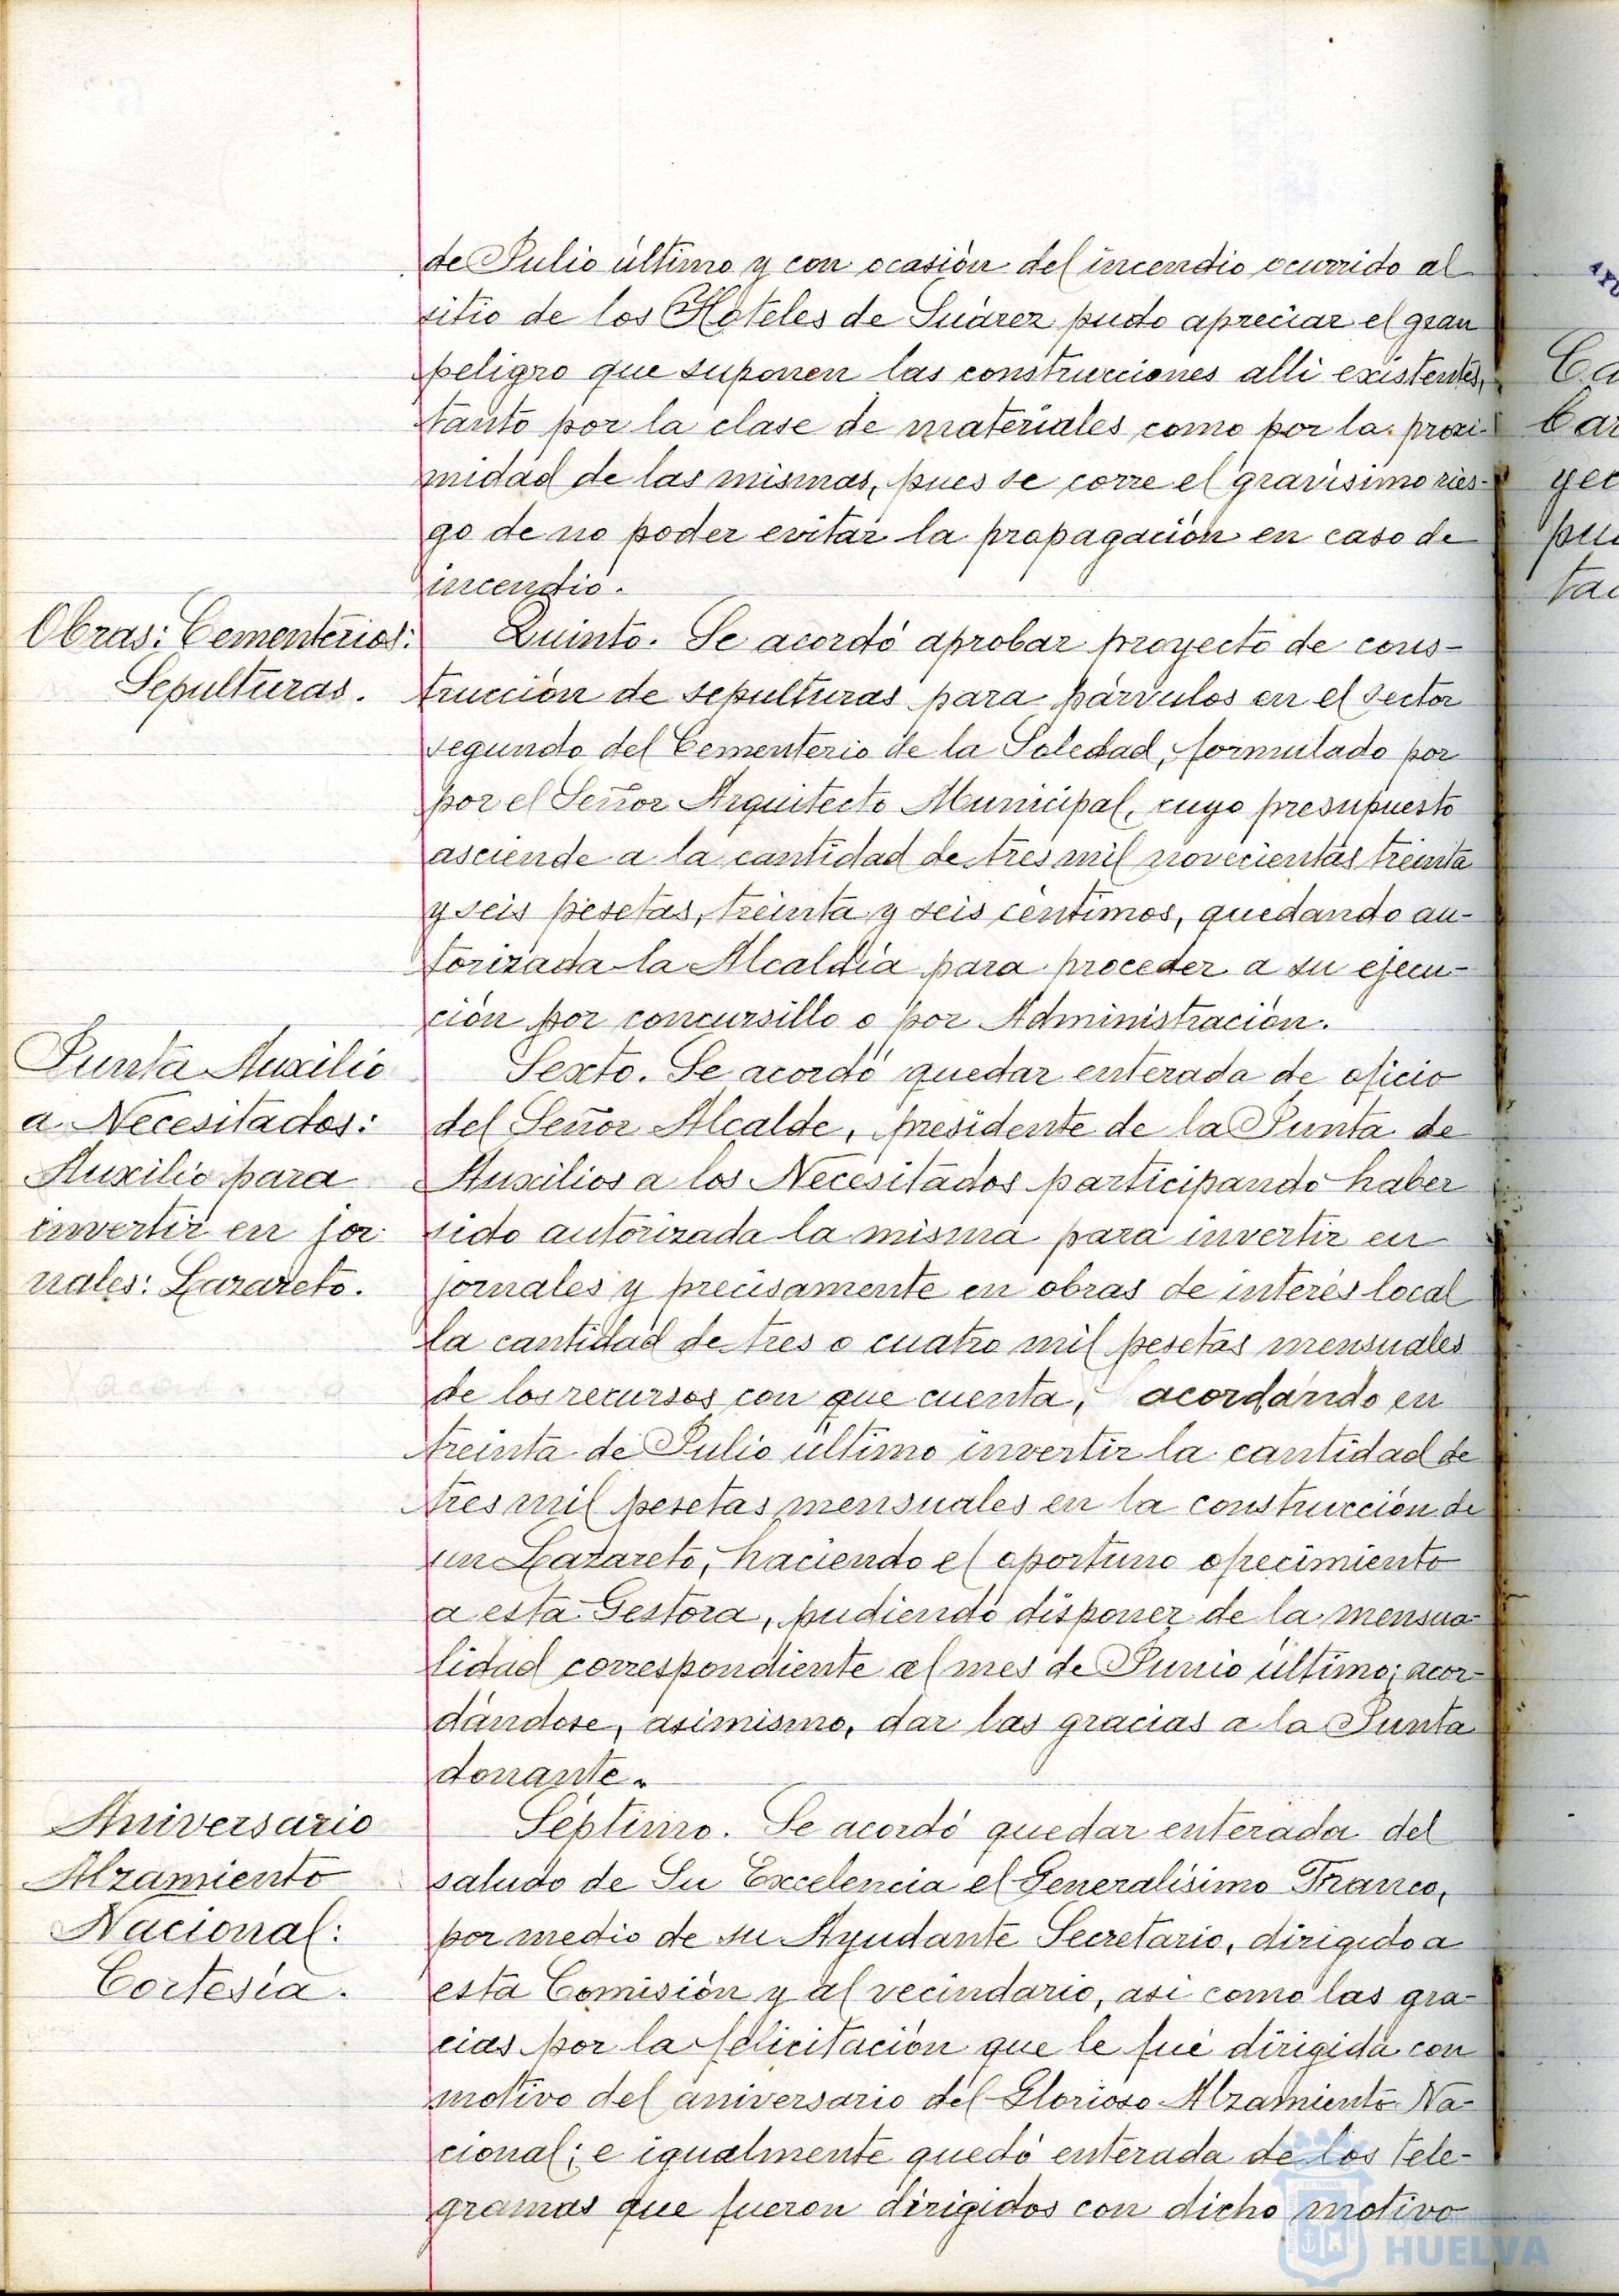 de Julio último y con ocasión del incendio ocurrido al
sitio de los Hoteles de Suárez pudo apreciar el gran
peligro que suponen las construcciones alli existentes,
tanto por la clase de materiales como por la proxi-
midad de las mismas, pues se corre el gravisimo ries-
go de no poder evitar la propagación en caso de
incendio.
Obras: Cementerios:
Sepulturas.
Quinto. Se acordó aprobar proyecto de cons-
trucción de sepulturas para párvulos en el sector
segundo del Cementerio de la Soledad, formulado por
por el Señor Arquitecto Municipal, cuyo presupuesto
asciende a la cantidad de tres mil novecientas treinta
y seis pesetas, treinta y seis céntimos, quedando au-
torizada la Alcaldía para proceder a su ejecu-
ción por concursillo o por Administración.
Junta Auxilio
a Necesitados:
Auxilio para
invertir en jor-
nales: Lazareto.
Sexto. Se acordó quedar enterada de oficio
del Señor Alcalde, presidente de la Junta de
Auxilios a los Necesitados participando haber
sido autorizada la misma para invertir en
jornales y precisamente en obras de interés local
la cantidad de tres o cuatro mil pesetas mensuales
de los recursos con que cuenta, acordando en
treinta de Julio último invertir la cantidad de
tres mil pesetas mensuales en la construcción de
un Lazareto, haciendo el oportuno ofrecimiento
a esta Gestora, pudiendo disponer de la mensua-
lidad correspondiente al mes de Junio último; acor-
dándose, asimismo, dar las gracias a la Junta
donante.
Aniversario
Alzamiento
Nacional:
Cortesía.
Séptimo. Se acordó quedar enterada del
saludo de Su Excelencia el Generalísimo Franco,
por medio de su Ayudante Secretario, dirigido a
esta Comisión y al vecindario, asi como las gra-
cias por la felicitación que le fué dirigida con
motivo del aniversario del Glorioso Alzamiento Na-
cional; e igualmente quedó enterada de los tele-
gramas que fueron dirigidos con dicho motivo
HUELVA